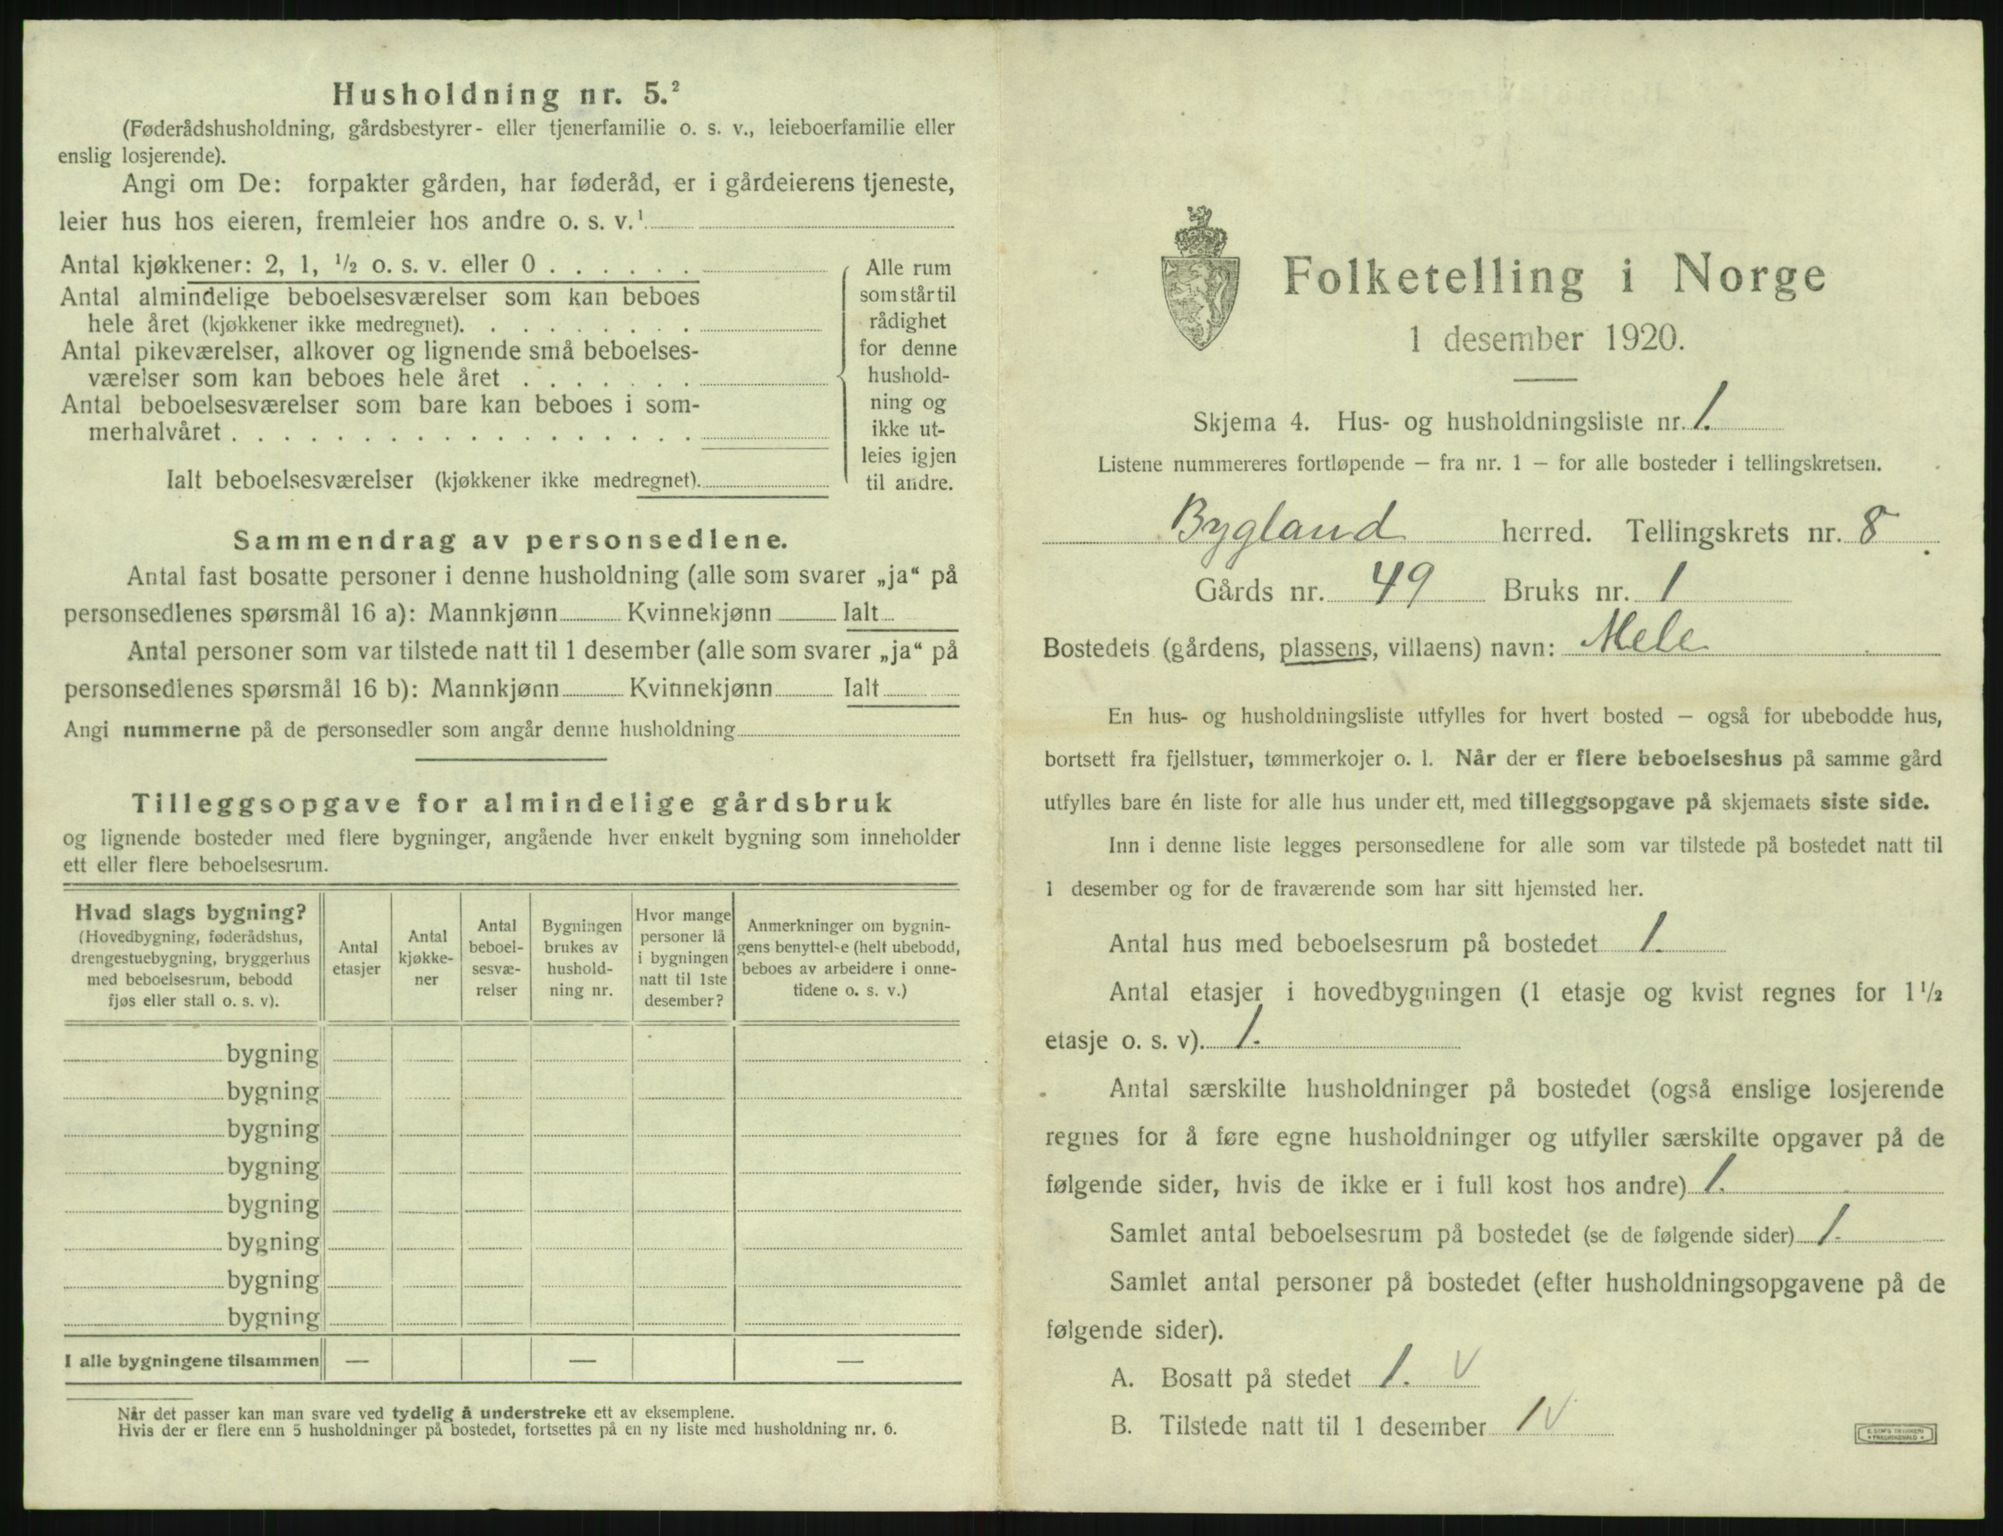 Husholdning nr. 5.²
(Føderådshusholdning, gårdsbestyrer- eller tjenerfamilie o. s. v., leieboerfamilie eller
enslig losjerende).
Angi om De: forpakter gården, har føderåd, er i gårdeierens tjeneste,
leier hus hos eieren, fremleier hos andre o. s. v.¹
Antal kjøkkener: 2, 1, ½ o. s. v. eller 0 . . . . . .
Antal almindelige beboelsesværelser som kan beboes
hele året (kjøkkener ikke medregnet). . . . . . . . .
Antal pikeværelser, alkover og lignende små beboelses-
værelser som kan beboes hele året . . . . . . .
Antal beboelsesværelser som bare kan beboes i som-
merhalvåret . . . . . . . . . . . . . . . . . .
Ialt beboelsesværelser (kjøkkener ikke medregnet).
Alle rum
som står til
rådighet
for denne
hushold-
ning og
ikke ut-
leies igjen
til andre.
Sammendrag av personsedlene.
Antal fast bosatte personer i denne husholdning (alle som svarer „ja“ på
personsedlenes spørsmål 16 a): Mannkjønn Kvinnekjønn Ialt
Antal personer som var tilstede natt til 1 desember (alle som svarer „ja“ på
personsedlenes spørsmål 16 b): Mannkjønn Kvinnekjønn Ialt
Angi nummerne på de personsedler som angår denne husholdning
Tilleggsopgave for almindelige gårdsbruk
og lignende bosteder med flere bygninger, angående hver enkelt bygning som inneholder
ett eller flere beboelsesrum.
Hvad slags bygning?
(Hovedbygning, føderådshus,
drengestuebygning, bryggerhus
med beboelsesrum, bebodd
fjøs eller stall o. s. v).
Antal
etasjer
Antal
kjøkke-
ner
Antal
beboel-
sesvæ-
relser
Bygningen
brukes av
hushold-
ning nr.
Hvor mange
personer lå
i bygningen
natt til 1ste
desember?
Anmerkninger om bygnin-
gens benyttelse (helt ubebodd,
beboes av arbeidere i onne-
tidene o. s. v.)
bygning
bygning
bygning
bygning
bygning
bygning
bygning
bygning
I alle bygningene tilsammen — — —
Når det passer kan man svare ved tydelig å understreke ett av eksemplene.
Hvis der er flere enn 5 husholdninger på bostedet, fortsettes på en ny liste med husholdning nr. 6.
Folketelling i Norge
1 desember 1920.
Skjema 4. Hus- og husholdningsliste nr. 1.
Listene nummereres fortløpende — fra nr. 1 — for alle bosteder i tellingskretsen.
Bygland herred. Tellingskrets nr. 8.
Gårds nr. 49 Bruks nr. 1
Bostedets (gårdens, plassens, villaens) navn: Mele
En hus- og husholdningsliste utfylles for hvert bosted — også for ubebodde hus,
bortsett fra fjellstuer, tømmerkojer o. l. Når der er flere beboelseshus på samme gård
utfylles bare én liste for alle hus under ett, med tilleggsopgave på skjemaets siste side.
Inn i denne liste legges personsedlene for alle som var tilstede på bostedet natt til
1 desember og for de fraværende som har sitt hjemsted her.
Antal hus med beboelsesrum på bostedet 1.
Antal etasjer i hovedbygningen (1 etasje og kvist regnes for 1½
etasje o. s. v). 1.
Antal særskilte husholdninger på bostedet (også enslige losjerende
regnes for å føre egne husholdninger og utfyller særskilte opgaver på de
følgende sider, hvis de ikke er i full kost hos andre) 1.
Samlet antal beboelsesrum på bostedet (se de følgende sider) 1.
Samlet antal personer på bostedet (efter husholdningsopgavene på de
følgende sider).
A. Bosatt på stedet 1. V
B. Tilstede natt til 1 desember 1 V